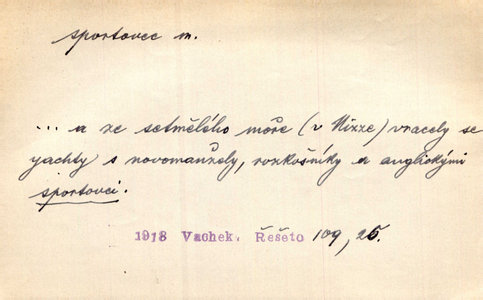 sportovec m.
... a ze setmělého moře (v Nizze) vracely se
yachty s novomanžely, rozkošníky a anglickými
sportovci.
1918 Vachek. Řešeto 109, 25.